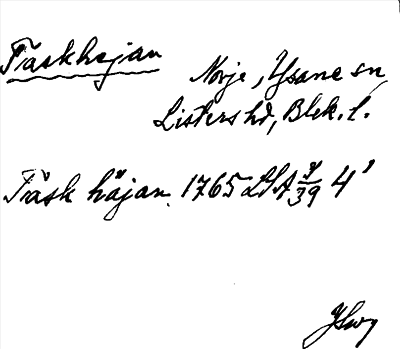 Fäskhejan
Norje, Ysane sn
Listers hd, Blek. l.
Fäsk häjan. 1765 LSA 4/39 4'